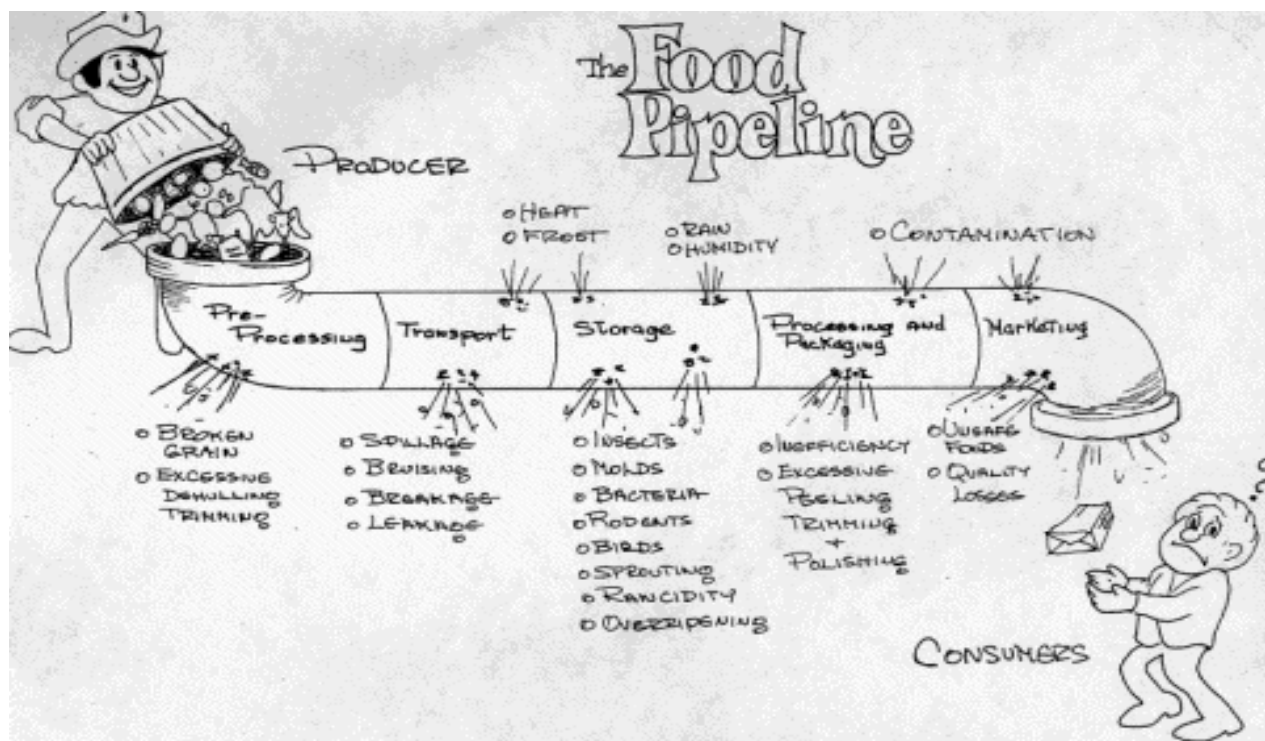 The Food
Pipeline
PRODUCER
o HEAT
o FROST
o RAIN
o HUMIDITY
o CONTAMINATION
Pre-
Processing
Transport
Storage
Processing and
Packaging
Marketing
o BROKEN
GRAIN
o EXCESSING
DEHULLING
TRIMMING
o SPILLAGE
o BRUISING
o BREAKAGE
o LEAKAGE
o INSECTS
o MOLDS
o BACTERIA
o RODENTS
o BIRDS
o SPROUTING
o RANCIDITY
o OVERRIPENING
o INEFFICIENCY
o EXCESSING
PEELING
TRIMMING
+
POLISHING
o UNSAFE
FOODS
o QUALITY
LOSSES
?
CONSUMERS